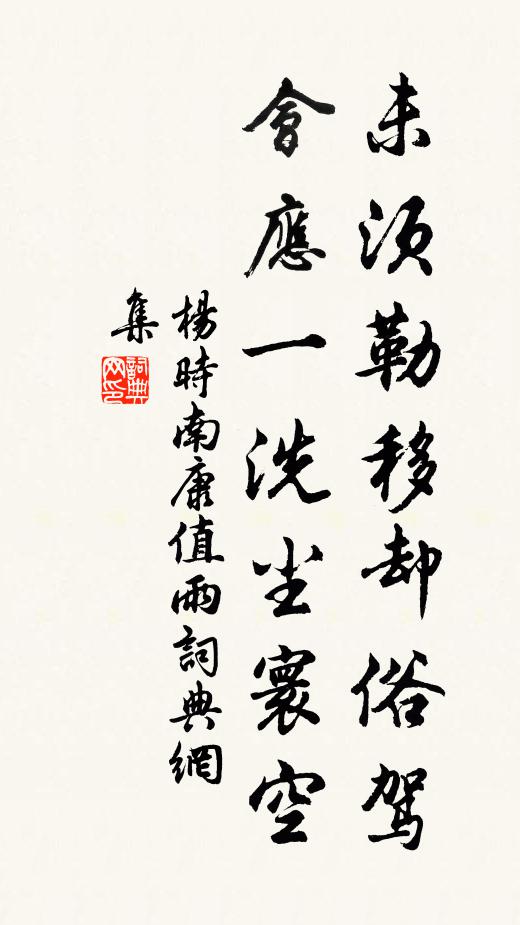 未須勒移却俗駕
會應一洗尘寰空
楊時南康值雨詞典網
集
詞典
网印